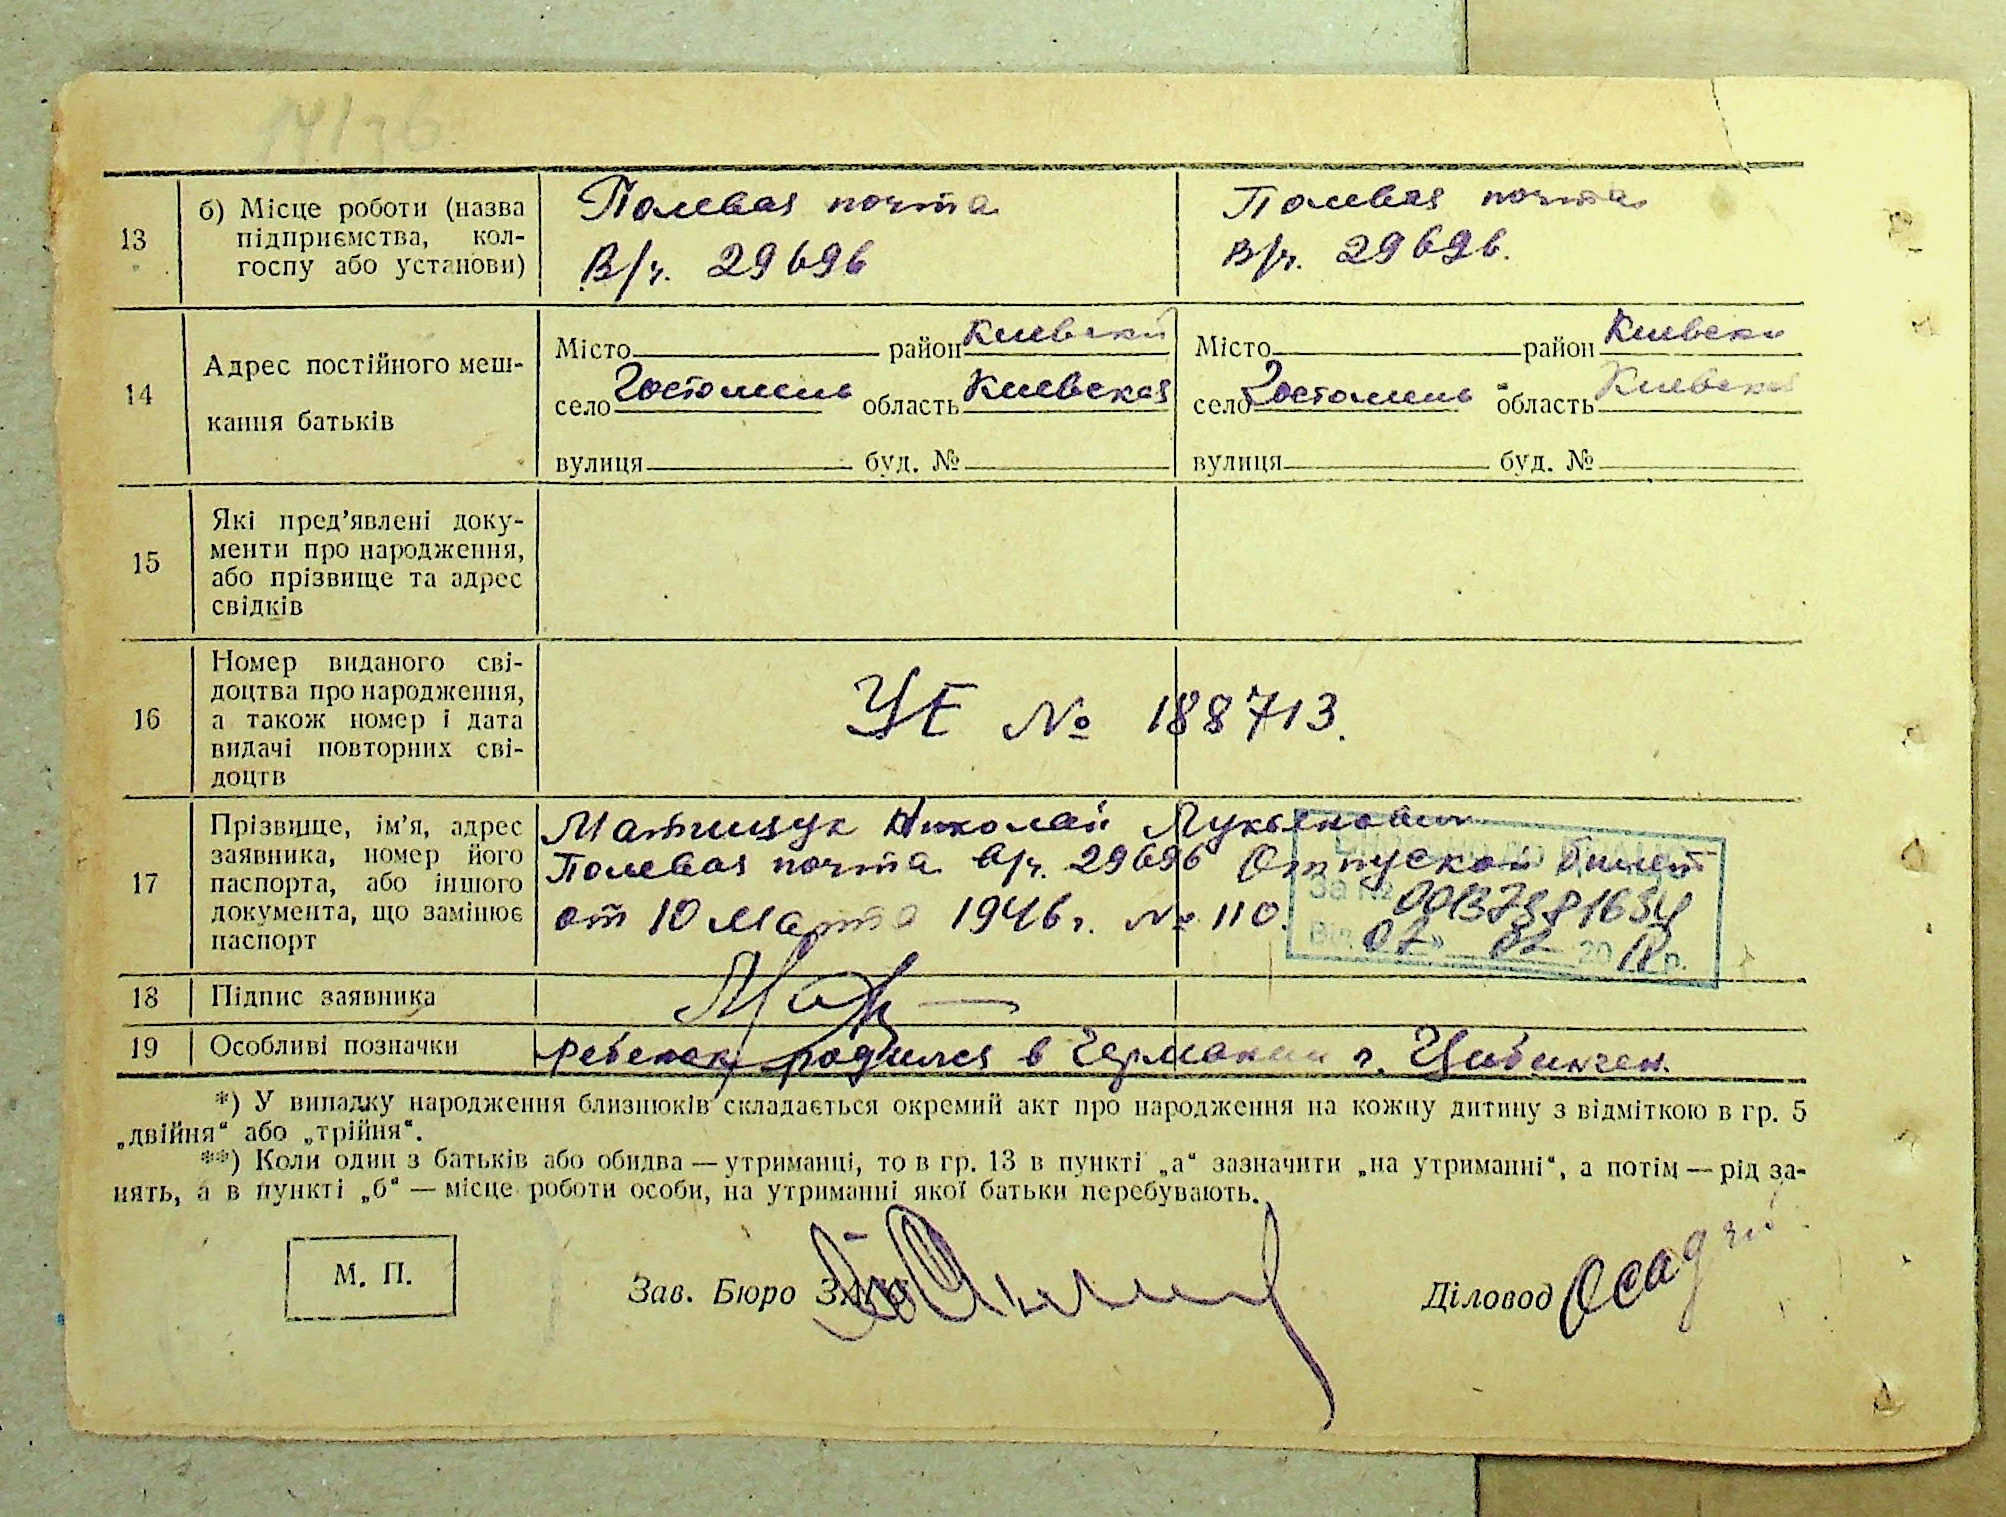 14/36
13
б) Місце роботи (назва
підприємства, кол-
госпу або установи)
Полевая почта
В/ч. 29696
Полевая почта
В/ч. 29696.
14
Адрес постійного меш-
кання батьків
Місто район Киевски
село Гостомель область Киевская
вулиця буд. №
Місто район Киевски
село Гостомель область Киевская
вулиця буд. №
15
Які пред’явлені доку-
менти про народження,
або прізвище та адрес
свідків
16
Номер виданого сві-
доцтва про народження,
а також номер і дата
видачі повторних сві-
доцтв
УЕ № 188713.
17
Прізвище, ім’я, адрес
заявника, номер його
паспорта, або іншого
документа, що замінює
паспорт
Матищук Николай Лукьянович
Полевая почта в/ч. 29696 Отпускной билет
от 10 Марта 1946 г. № 110.
За № 00137581654
Від 07 02 20 18 р.
18
Підпис заявника
19
Особливі позначки
Ребенок родился в Германии г. Цибинген.
*) У випадку народження близнюків складається окремий акт про народження на кожну дитину з відміткою в гр. 5
„двійня“ або „трійня“.
**) Коли один з батьків або обидва — утриманці, то в гр. 13 в пункті „а“ зазначити „на утриманні“, а потім — рід за-
нять, а в пункті „б“ — місце роботи особи, на утриманні якої батьки перебувають.
М. П.
Зав. Бюро ЗАГС
Діловод